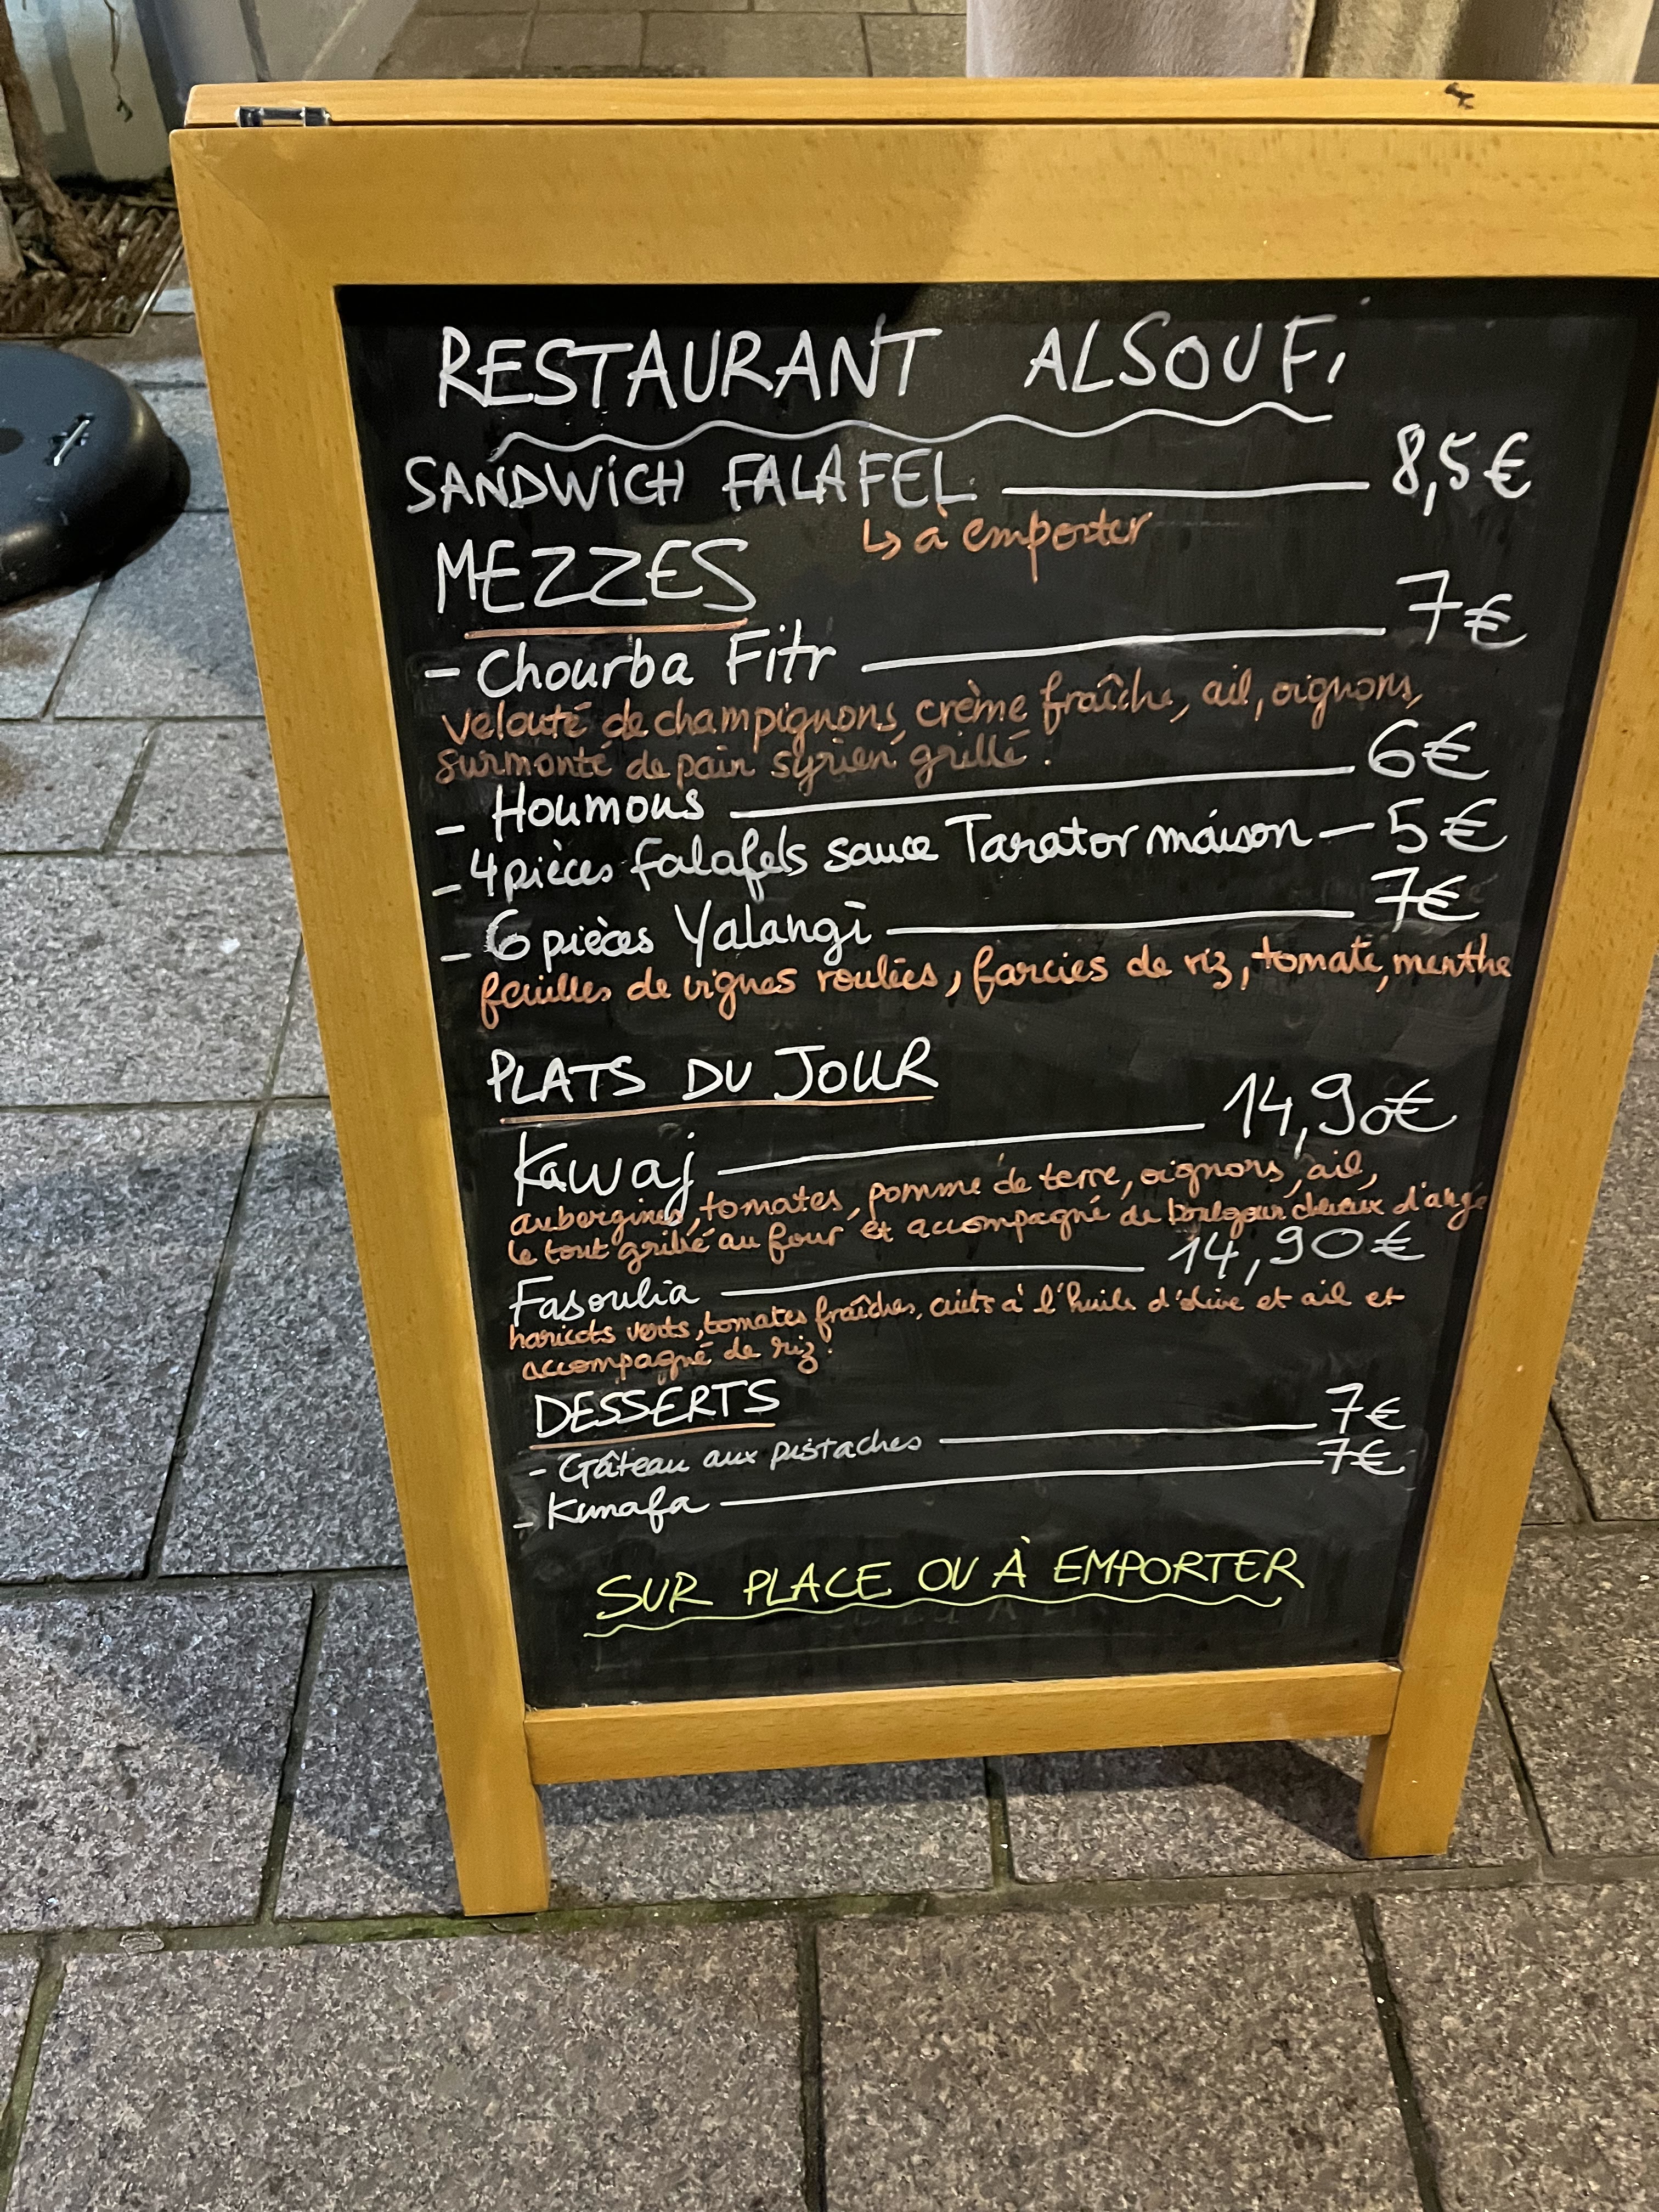 RESTAURANT ALSOUFi
SANDWiCH FALAFEL 8,5€
↳ à emporter
MEZZES
- Chourba Fitr 7€
velouté de champignons, crème fraîche, ail, oignons,
surmonté de pain syrien grillé.
- Houmous 6€
- 4 pièces falafels sauce Tarator maison - 5€
- 6 pièces Yalangi 7€
feuilles de vignes roulées, farcies de riz, tomate, menthe
PLATS DU JOUR
Kawaj 14,90€
aubergines, tomates, pomme de terre, oignons, ail,
le tout grillé au four et accompagné de boulgour cheveux d'ange
Fasoulia 14,90€
haricots verts, tomates fraîches, cuits à l'huile d'olive et ail et
accompagné de riz.
DESSERTS
- Gâteau aux pistaches 7€
- Kunafa 7€
SUR PLACE OU À EMPORTER